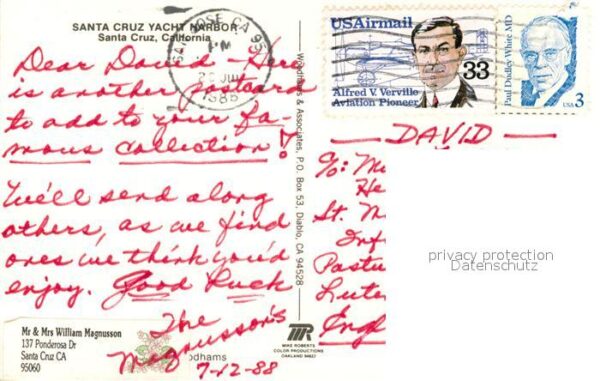 SANTA CRUZ YACHT HARBOR
Santa Cruz, California
Dear David - Here
is another postcard
to add to your fa-
mous collection!
We'll send along
others, as we find
ones we think you'd
enjoy. Good Luck
The
Magnusson's
7-12-88
Mr & Mrs William Magnusson
137 Ponderosa Dr
Santa Cruz CA
95060
odhams
Woodhams & Associates, P.O. Box 53, Diablo, CA 94528
MIKE ROBERTS
COLOR PRODUCTIONS
OAKLAND 94627
SAN JOSE, CA 95
PM
USAirmail
33
Alfred V. Verville
Aviation Pioneer
Paul Dudley White MD
USA 3
— DAVID —
c/o: M
He
St. M
Inf
Pastu
Lute
Engl
privacy protection
Datenschutz